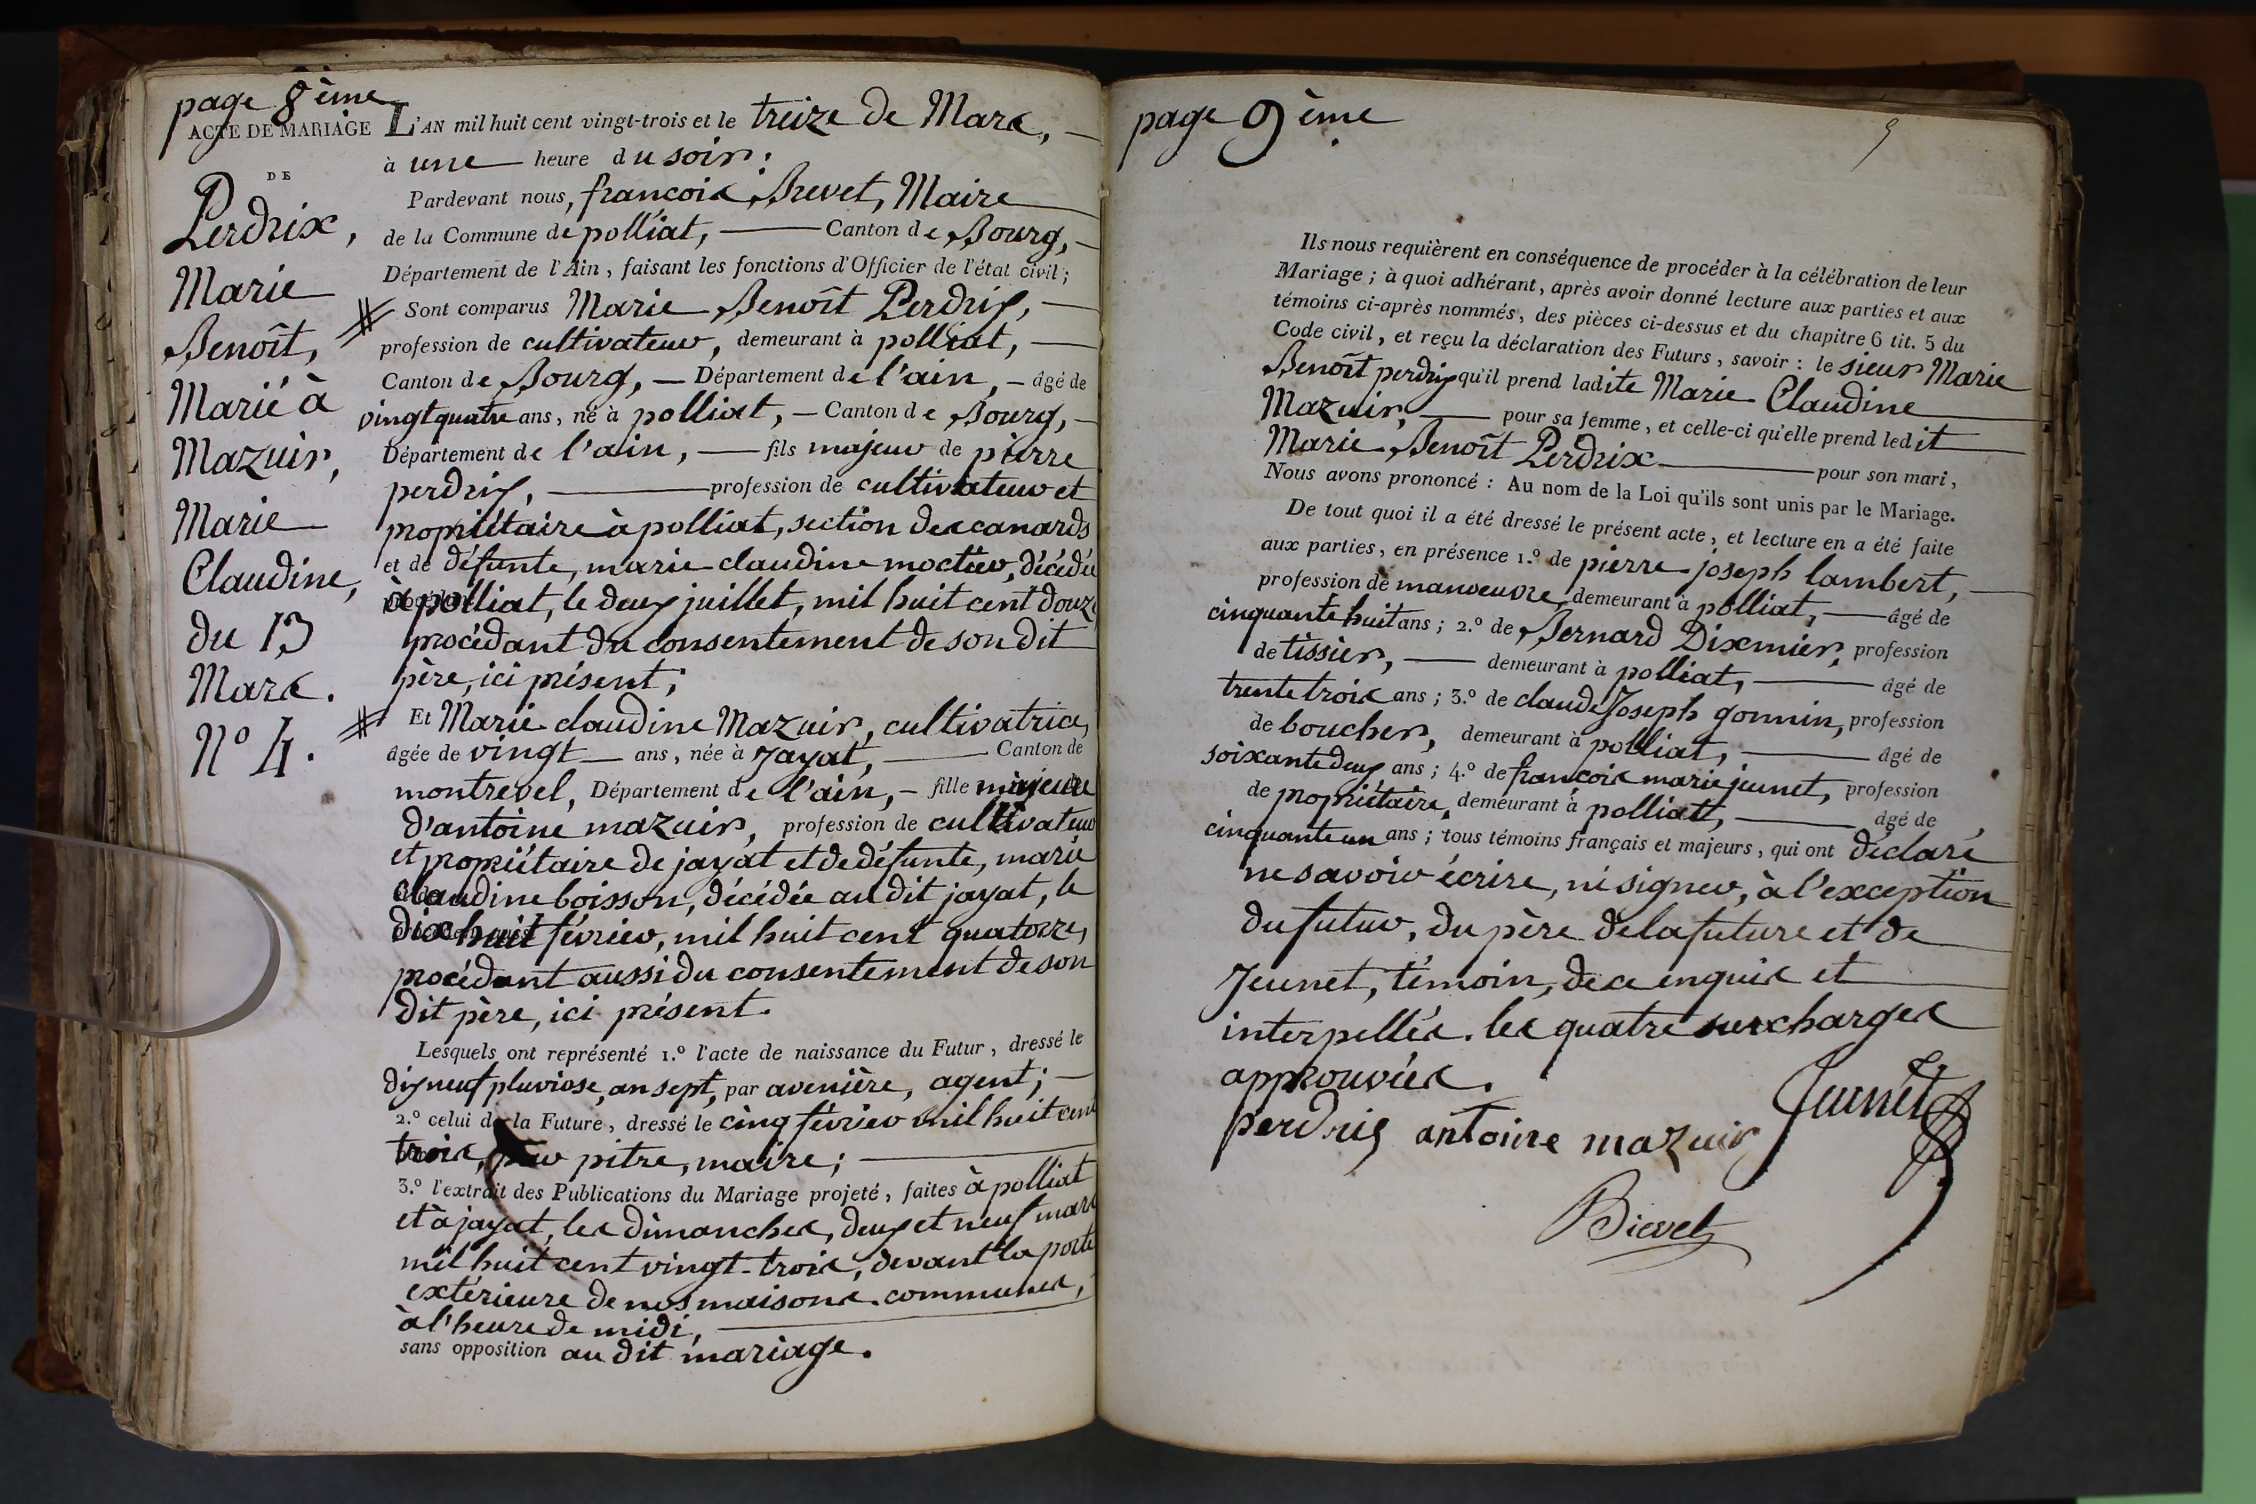 page 8ème
ACTE DE MARIAGE
DE
Perdrix,
Marie
Benoît,
Marié à
Mazuir,
Marie
Claudine,
du 13
Mars.
N° 4.
L'AN mil huit cent vingt-trois et le treize de Mars,
à une heure du soir;
Pardevant nous, françois Brevet, Maire
de la Commune de polliat, Canton de Bourg,
Département de l'Ain, faisant les fonctions d'Officier de l'état civil;
Sont comparus Marie Benoît Perdrix,
profession de cultivateur, demeurant à polliat,
Canton de Bourg, Département de l'ain, âgé de
vingt quatre ans, né à polliat, Canton de Bourg,
Département de l'ain, fils majeur de pierre
perdrix, profession de cultivateur et
propriétaire à polliat, section des canards
et de défunte, marie claudine moctier, décédée
à polliat, le deux juillet, mil huit cent douze
procédant du consentement de son dit
père, ici présent;
Et Marie claudine Mazuir, cultivatrice,
âgée de vingt ans, née à Jayat, Canton de
montrevel, Département de l'ain, fille mineure
d'antoine mazuir, profession de cultivateur
et propriétaire de jayat et de défunte, marie
claudine boisson, décédée au dit jayat, le
dix huit février, mil huit cent quatorze,
procédant aussi du consentement de son
dit père, ici présent.
Lesquels ont représenté 1.º l'acte de naissance du Futur, dressé le
dix neuf pluviose, an sept, par avenière, agent;
2.º celui de la Future, dressé le cinq février mil huit cent
trois, par pitre, maire;
3.º l'extrait des Publications du Mariage projeté, faites à polliat
et à jayat, les dimanches, deux et neuf mars
mil huit cent vingt-trois, devant la porte
extérieure de nos maisons communes,
à l'heure de midi,
sans opposition au dit mariage.
page 9ème
9
Ils nous requièrent en conséquence de procéder à la célébration de leur
Mariage; à quoi adhérant, après avoir donné lecture aux parties et aux
témoins ci-après nommés, des pièces ci-dessus et du chapitre 6 tit. 5 du
Code civil, et reçu la déclaration des Futurs, savoir: le sieur Marie
Benoît perdrix qu'il prend ladite Marie Claudine
Mazuir, pour sa femme, et celle-ci qu'elle prend ledit
Marie Benoît Perdrix pour son mari,
Nous avons prononcé: Au nom de la Loi qu'ils sont unis par le Mariage.
De tout quoi il a été dressé le présent acte, et lecture en a été faite
aux parties, en présence 1.º de pierre joseph lambert,
profession de manoeuvre, demeurant à polliat, âgé de
cinquante huit ans; 2.º de Bernard Dixmier, profession
de tissier, demeurant à polliat, âgé de
trente trois ans; 3.º de claude Joseph gonnin, profession
de boucher, demeurant à polliat, âgé de
soixante deux ans; 4.º de françois marie jeunet, profession
de propriétaire, demeurant à polliat, âgé de
cinquante un ans; tous témoins français et majeurs, qui ont déclaré
ne savoir écrire, ni signer, à l'exception
du futur, du père de la future et de
Jeunet, témoin, de ce enquis et
interpellés. les quatre surcharges
approuvées.
perdrix antoine mazuir Jeunet
Brevet